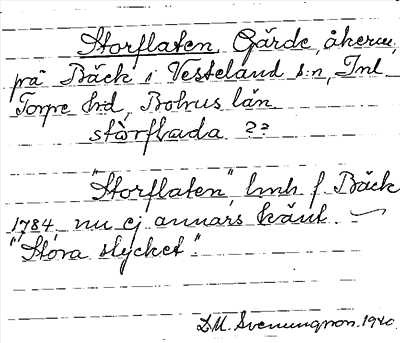 Storflaten, Gärde, åkern,
på Bäck i Vesteland s:n, Inl.
Torpe hrd, Bohus län
storflada ??
"Storflaten", lmh f Bäck
1784, nu ej annars känt.
"Stora stycket".
D.M. Svenungson. 1940.